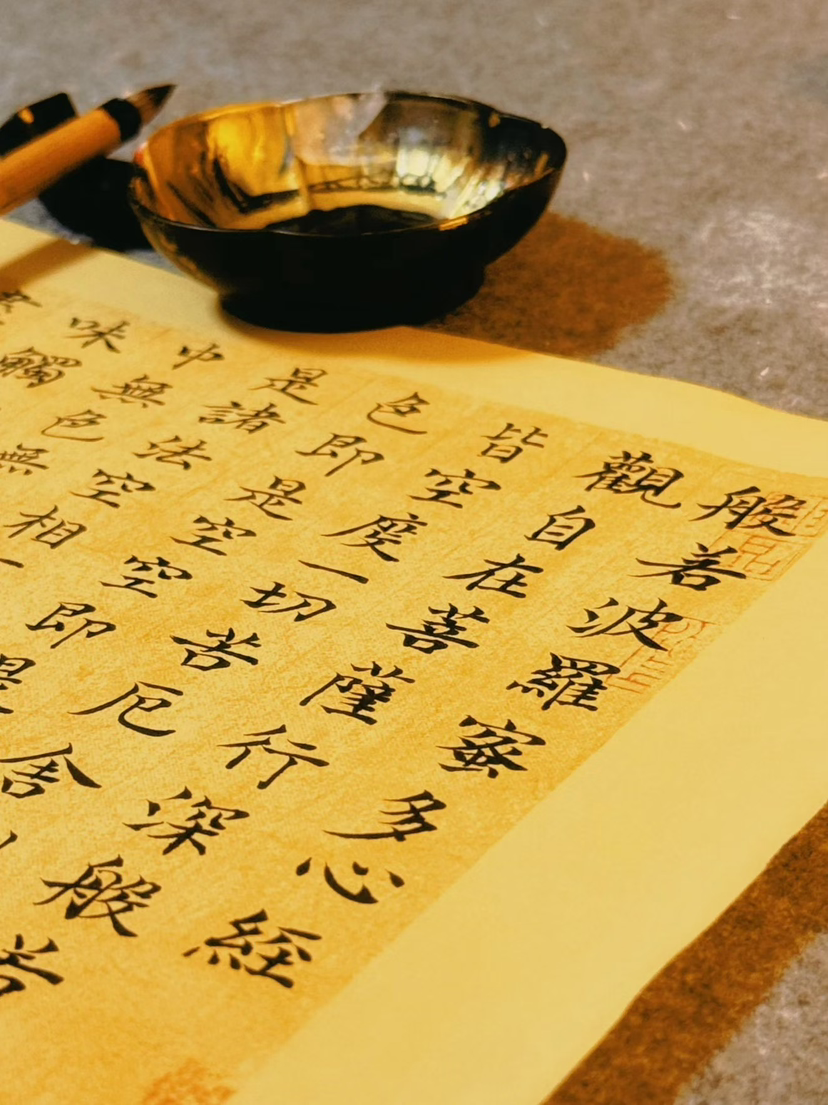 般若波羅蜜多心経
觀自在菩薩行深般若
皆空度一切苦厄舍
色即是空空即是
是諸法空相
中無色無
味觸